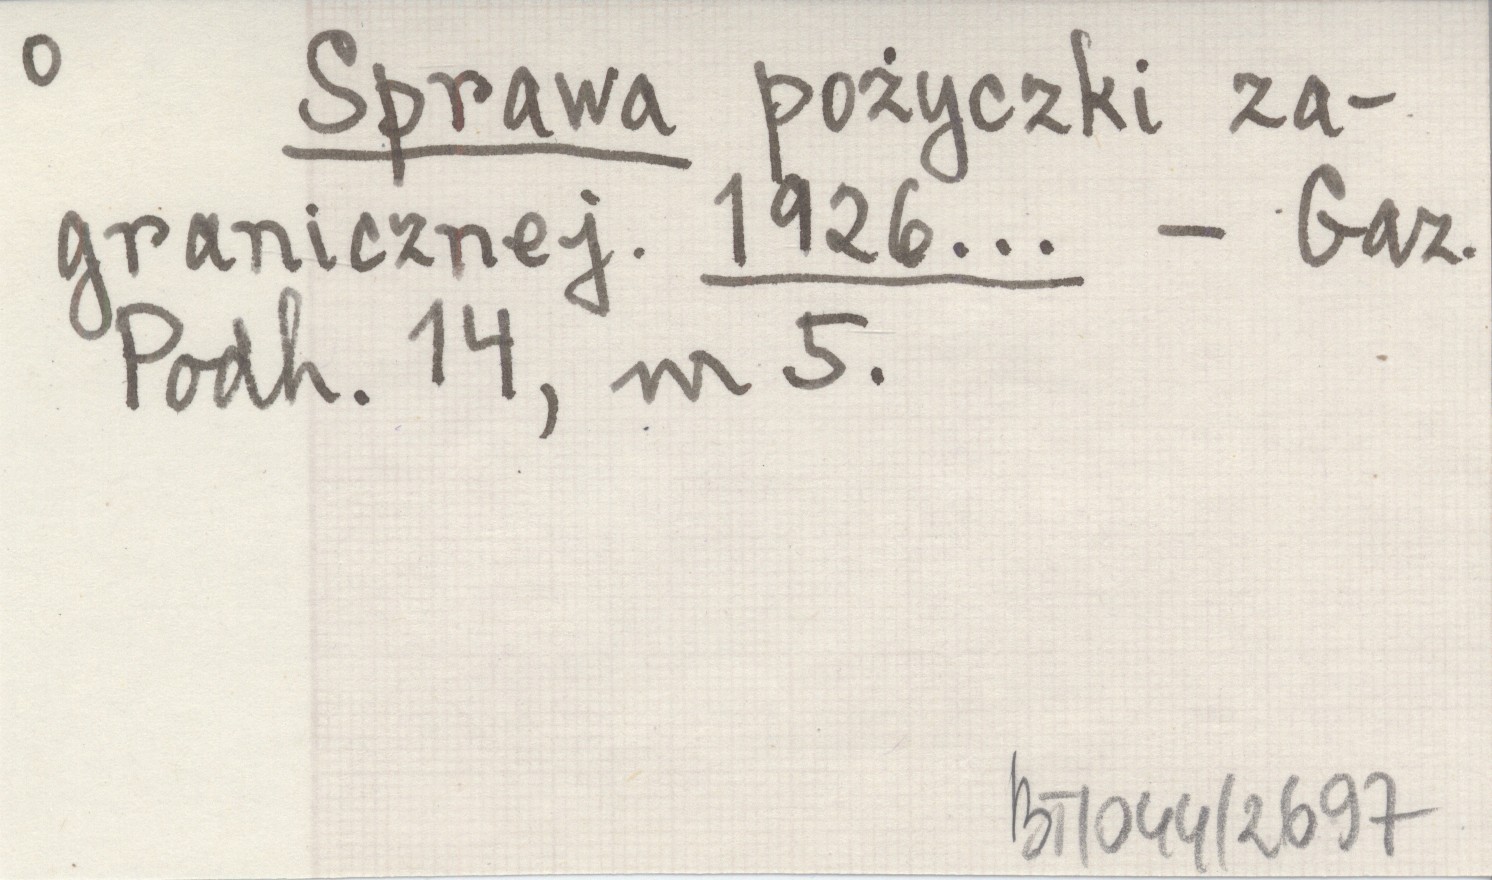 o Sprawa pożyczki za-
granicznej. 1926... - Gaz.
Podh. 14, nr 5.
BT/044/2697